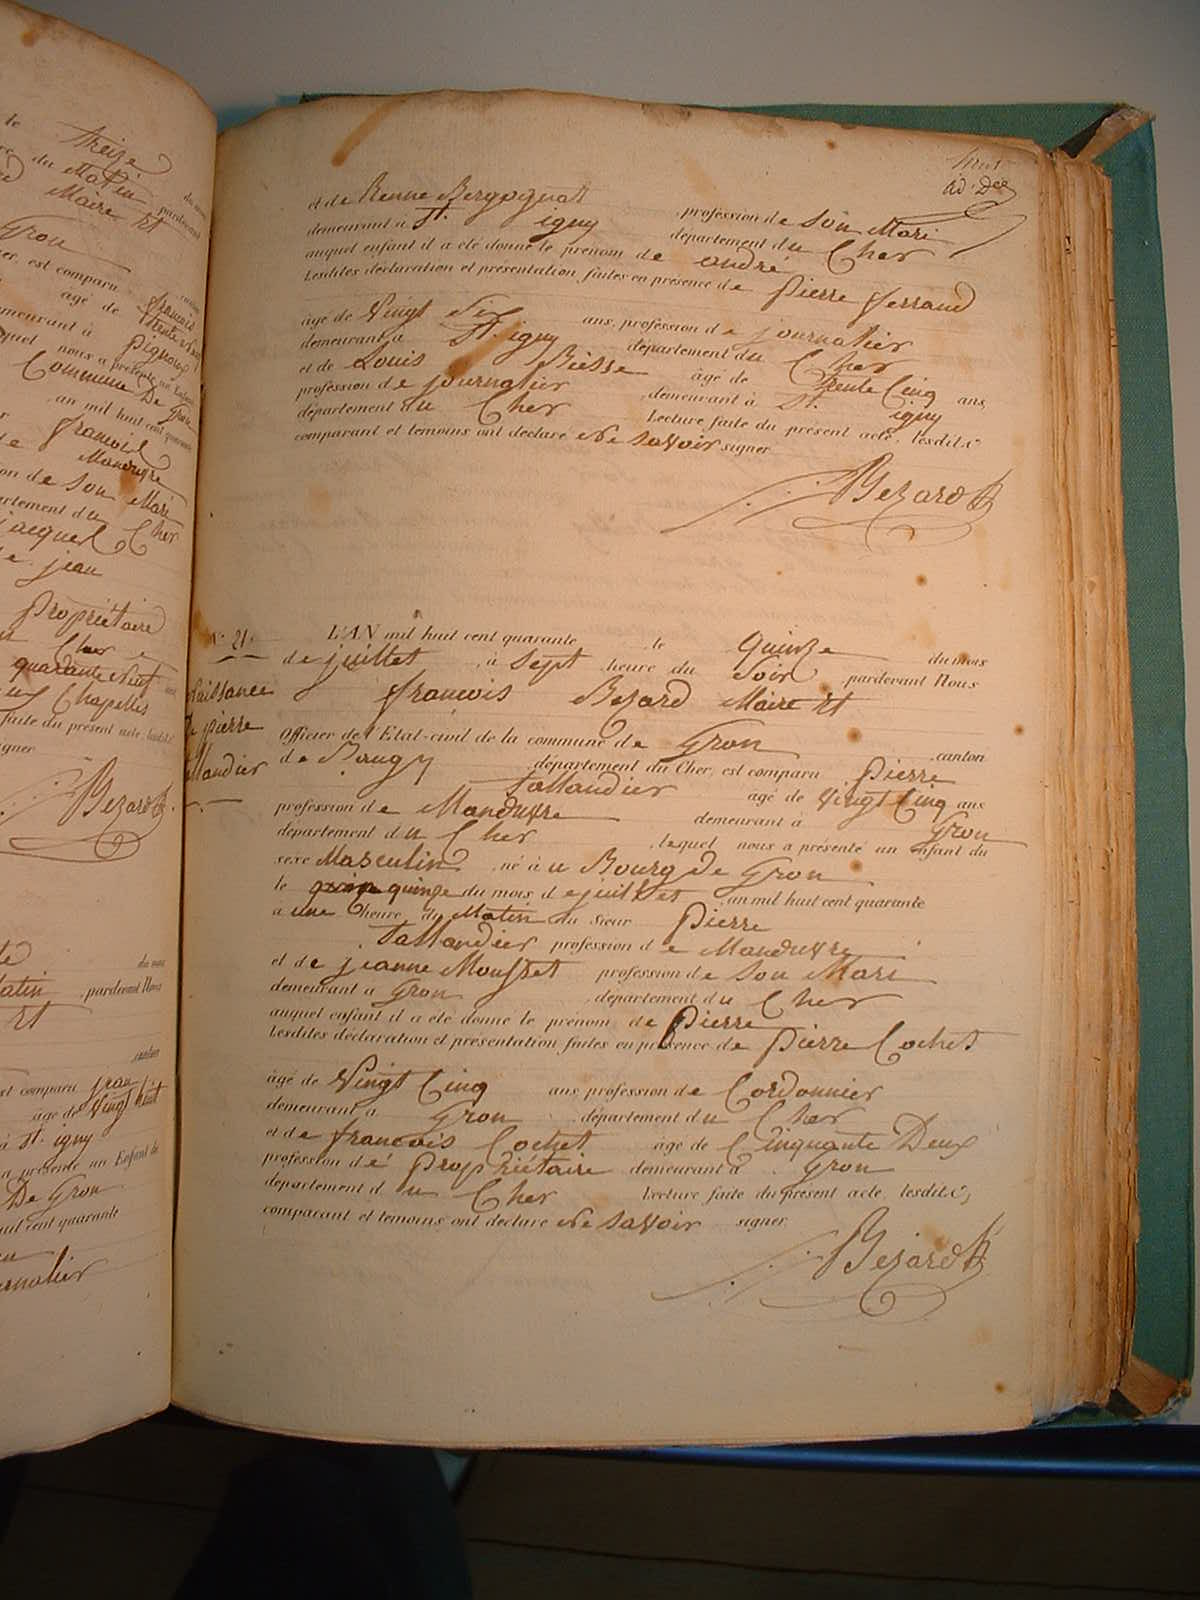 le treize du mois
du Matin pardevant
Maire Et
Gron
er, est comparu francois
agé de trente
demeurant à Pignoux
quel nous a présenté un Enfant
Commune De Gron
an mil huit cent quarante
francois
Manduvre
on de Son Mari
rtement du Cher
jacques
de jean
Propriétaire
Cher
quarante Neuf ans
Chapelles
faite du présent acte, lesdits
signer
Bezard
du mois
Matin pardevant Nous
Et
canton
est comparu jean
âgé de Vingt huit
à St. igny
a présenté un Enfant du
De Gron
mil cent quarante
journalier
et de Renne Bergognat profession de Son Mari
demeurant à St. igny département du Cher
auquel enfant il a été donné le prénom de andré
Lesdites déclaration et présentation faites en présence de Pierre ferrand
âgé de Vingt Six ans, profession de journalier
demeurant à St. igny département du Cher
et de Louis Biesse âgé de Trente Cinq ans,
profession de journalier demeurant à St. igny
département du Cher Lecture faite du présent acte, lesdits
comparant et temoins ont déclaré Ne Savoir signer
Bezard
N° 21.
Naissance
De pierre
tallandier
L'AN mil huit cent quarante le Quinze du mois
de juillet, à Sept heure du Soir pardevant Nous
francois Bezard Maire Et
Officier de l'Etat-civil de la commune de Gron canton
de Baugy département du Cher, est comparu Pierre
tallandier agé de Vingt Cinq ans
profession de Manduvre demeurant à Gron
département du Cher, lequel nous a présenté un enfant du
sexe Masculin, né à u Bourg de Gron
le quinze du mois de juillet an mil huit cent quarante
a une heure du Matin du sieur Pierre
tallandier profession de Manduvre
et de jeanne Mousset profession de Son Mari
demeurant à Gron département du Cher
auquel enfant il a été donné le prénom de Pierre
Lesdites déclaration et présentation faites en présence de Pierre Cochet
âgé de Vingt Cinq ans, profession de Cordonnier
demeurant à Gron département du Cher
et de francois Cochet âgé de Cinquante Deux
profession de Propriétaire demeurant à Gron
département du Cher Lecture faite du présent acte, lesdits
comparant et temoins ont déclaré Ne Savoir signer.
Bezard